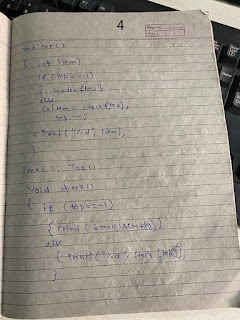 4
void pop()
{ int item;
if (top == -1)
{ underflow }
else
{ item = stack[top];
top--;
printf("%d", item);
}
void peek()
{ if (top == -1)
{ printf(stack is empty)
else
{ printf("%d", stack[top]);
}